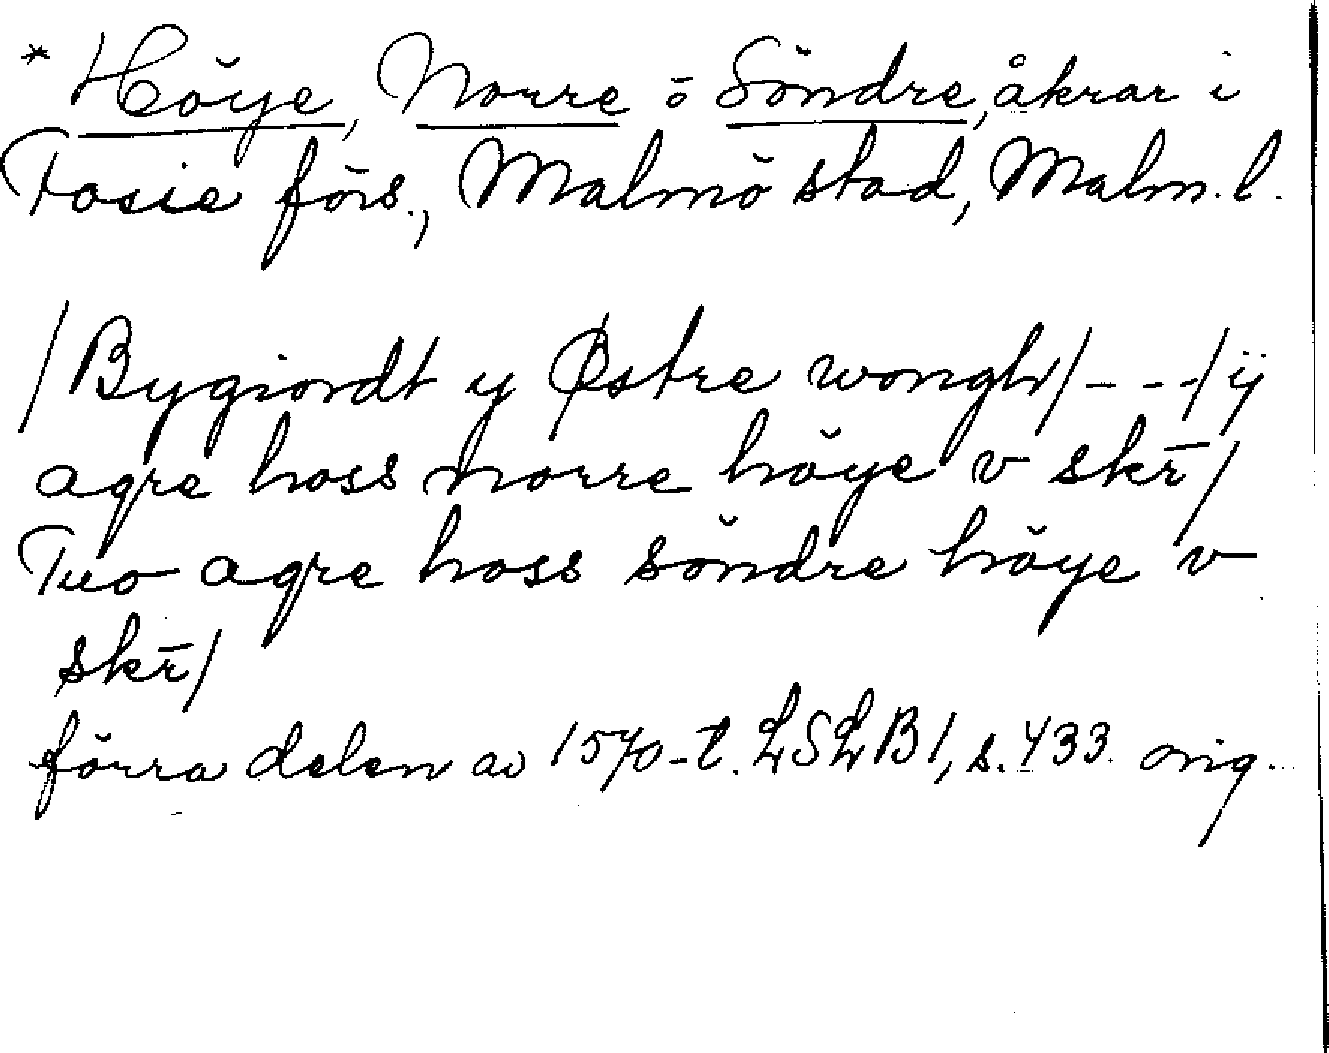 * Höye, Norre o Söndre, åkrar i
Fosie förs., Malmö stad, Malm. l.
/Bygiordt y Østre wongh/---/ÿ
agre hoss norre höye v skr̄/
Tuo agre hoss söndre höye v
skr̄/
förra delen av 1570-t. LSLB1, s. 433. orig.